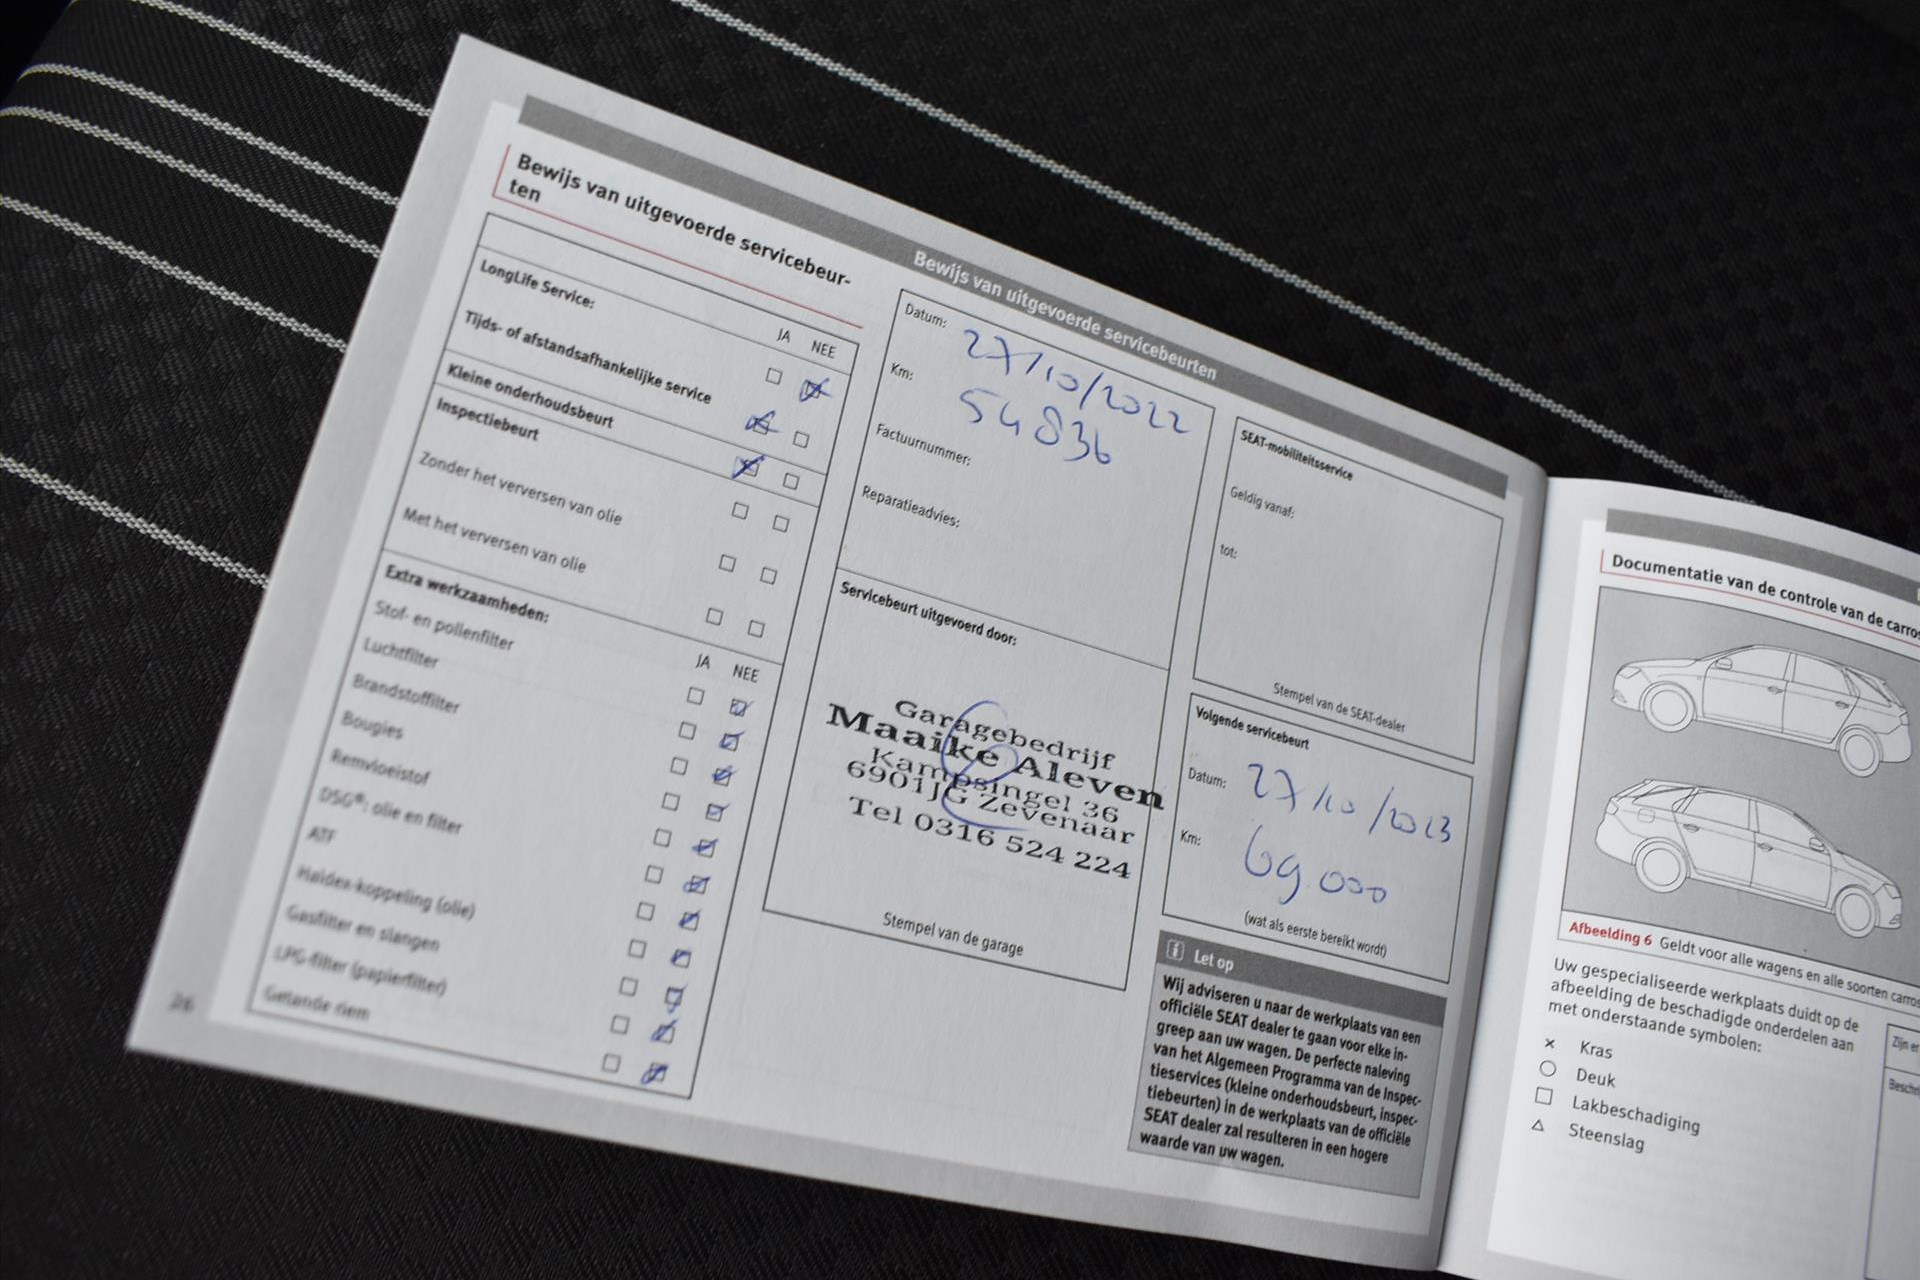 Bewijs van uitgevoerde servicebeurten
Bewijs van uitgevoerde servicebeur-
ten
LongLife Service:
JA NEE
Tijds- of afstandsafhankelijke service
Kleine onderhoudsbeurt
Inspectiebeurt
Zonder het verversen van olie
Met het verversen van olie
Extra werkzaamheden:
JA NEE
Stof- en pollenfilter
Luchtfilter
Brandstoffilter
Bougies
Remvloeistof
DSG®: olie en filter
ATF
Haldex-koppeling (olie)
Gasfilter en slangen
LPG-filter (papierfilter)
Getande riem
26
Datum: 27/10/2022
Km: 54836
Factuurnummer:
Reparatieadvies:
Servicebeurt uitgevoerd door:
Garagebedrijf
Maaike Aleven
Kampsingel 36
6901JG Zevenaar
Tel 0316 524 224
Stempel van de garage
SEAT-mobiliteitsservice
Geldig vanaf:
tot:
Stempel van de SEAT-dealer
Volgende servicebeurt
Datum: 27/10/2023
Km: 69.000
(wat als eerste bereikt wordt)
i Let op
Wij adviseren u naar de werkplaats van een
officiële SEAT dealer te gaan voor elke in-
greep aan uw wagen. De perfecte naleving
van het Algemeen Programma van de Inspec-
tieservices (kleine onderhoudsbeurt, inspec-
tiebeurten) in de werkplaats van de officiële
SEAT dealer zal resulteren in een hogere
waarde van uw wagen.
Documentatie van de controle van de carros
Afbeelding 6 Geldt voor alle wagens en alle soorten carros
Uw gespecialiseerde werkplaats duidt op de
afbeelding de beschadigde onderdelen aan
met onderstaande symbolen:
× Kras
○ Deuk
□ Lakbeschadiging
△ Steenslag
Zijn er
Beschr